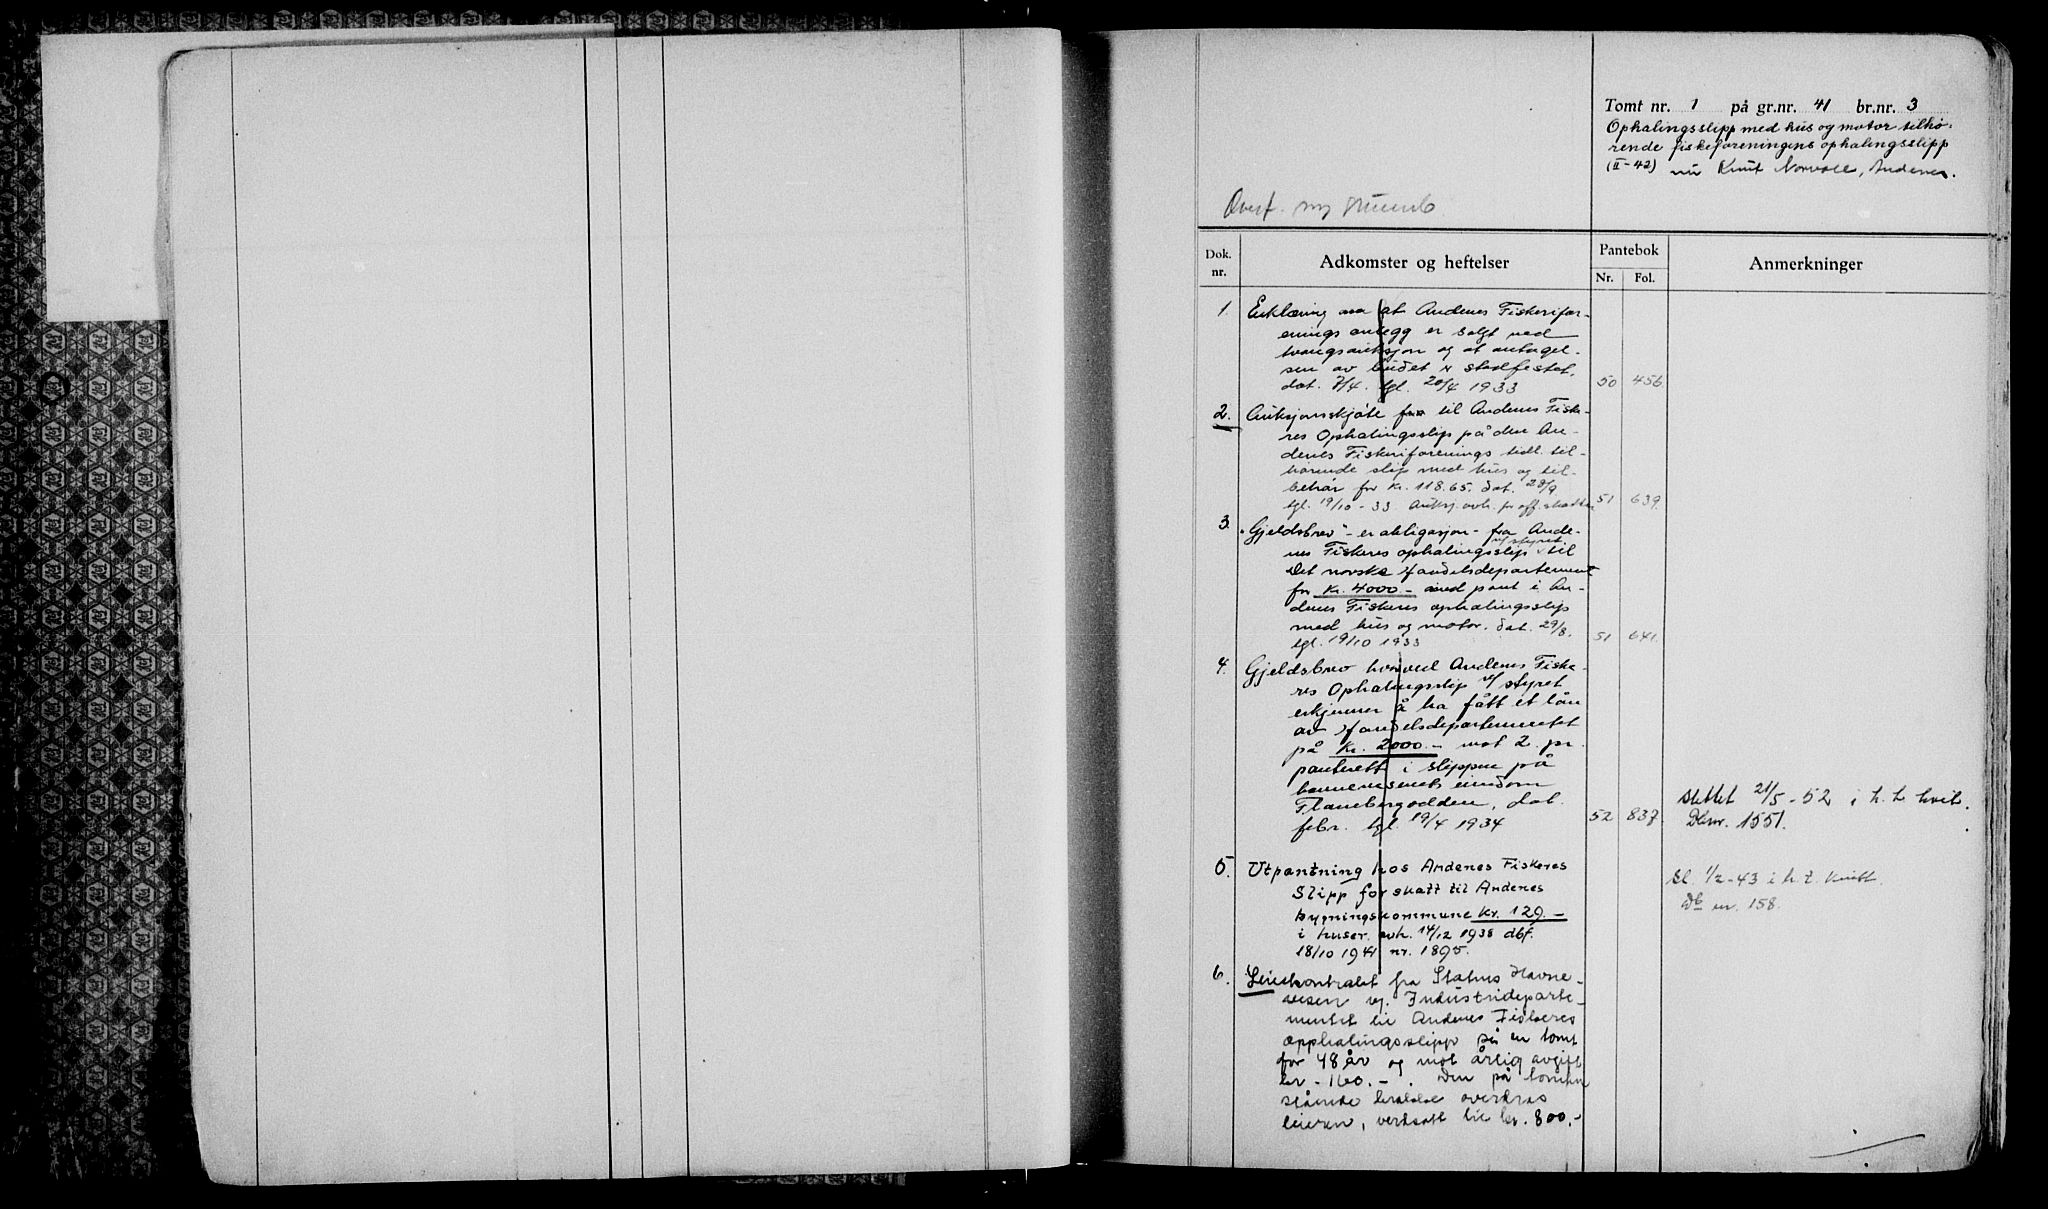 Tomt nr. 1 på gr.nr. 41 br.nr. 3
Ophalingsslipp med hus og motor tilhø-
rende fiskeforeningens ophalingsslipp
(II-42) nu Knut Norvoll, Andenes.
Overf. ny
Dok. nr.
Adkomster og heftelser
Pantebok
Nr. Fol.
Anmerkninger
1. Erklæring om at Andenes Fiskerifor-
enings anlegg er solgt ved
tvangsauksjon og at antagel-
sen av budet er stadfestet,
dat. 7/4. tgl. 20/4 1933 50 456.
2. Auksjonsskjøte fra til Andenes Fiske-
res Ophalingsslip på den An-
denes Fiskeriforenings tidl. til-
hørende slip med hus og til-
behør for kr. 118.65. dat. 28/9
tgl. 19/10-33 Auksj. avh. for off. skatter 51 639.
3. "Gjeldsbrev" - er obligasjon - fra Ande-
nes Fiskeres ophalingsslip v/styret til
Det norske Handelsdepartement
for kr. 4000.- med pant i An-
denes Fiskeres ophalingsslip
med hus og motor. dat. 29/8.
tgl. 19/10 1933 51 641.
4. Gjeldsbrev hvorved Andenes Fiske-
res Ophalingsslip v/ styret
erkjenner å ha fått et lån
av Handelsdepartementet
på kr. 2000.- mot 2. pr.
panterett i slippen på
havnevesenets eiendom
Flanebergodden, dat.
febr. tgl. 19/4 1934 52 837.
Slettet 21/5-52 i h. t. kvit.
Dbnr. 1551.
5. Utpantning hos Andenes Fiskeres
Slipp for skatt til Andenes
bygningskommune kr. 129.-
i huser. avh. 14/12 1938 dbf.
18/10 1941 nr. 1895.
Sl. 1/2-43 i h. t. kvitt.
Db nr. 158.
6. Leiekontrakt fra Statens Havne-
vesen v. Industrideparte-
mentet til Andenes Fiskeres
opphalingsslipp på en tomt
for 48 år og mot årlig avgift
kr - 160.-. Den på tomten
stående overdras
leieren, verdsatt til kr. 800.-